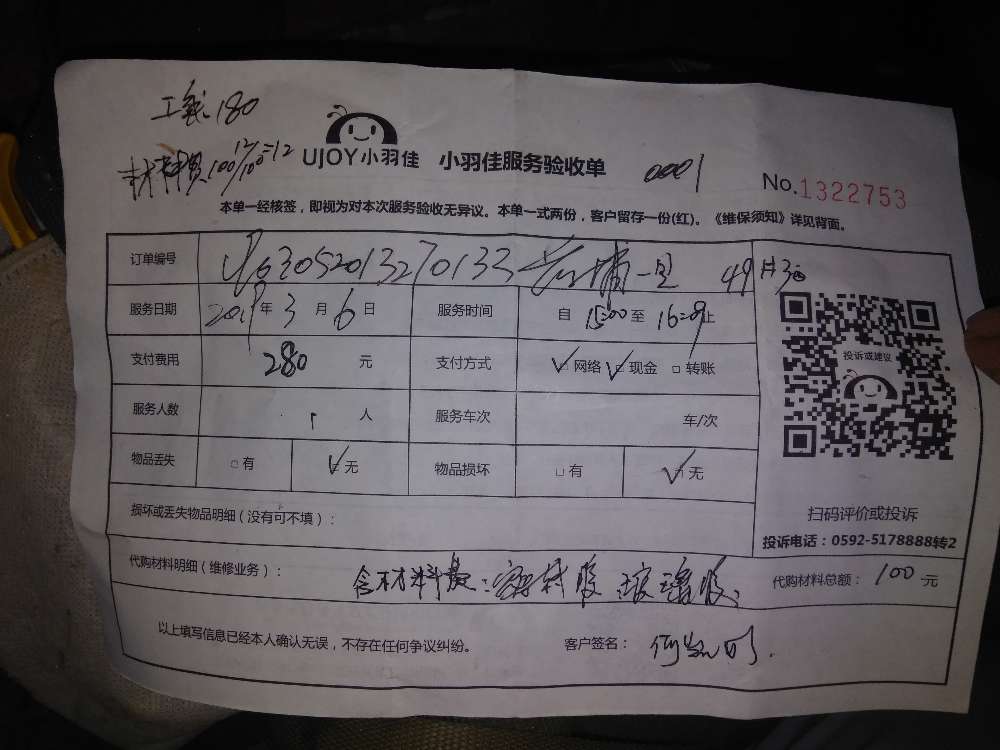 工钱:180
材料费100/10 12=12
UJOY小羽佳 小羽佳服务验收单 0001 No.1322753
本单一经核签，即视为对本次服务验收无异议。本单一式两份，客户留存一份(红)。《维保须知》详见背面。
订单编号 49#3
服务日期 2019年3月6日 服务时间 自15:00至16:09止
支付费用 280元 支付方式 网络 现金 转账
服务人数 1人 服务车次 车/次
物品丢失 有 无 物品损坏 有 无
损坏或丢失物品明细（没有可不填）：
代购材料明细（维修业务）： 含材料费: 玻璃胶 代购材料总额：100元
以上填写信息已经本人确认无误，不存在任何争议纠纷。 客户签名：
投诉或建议
扫码评价或投诉
投诉电话：0592-5178888转2